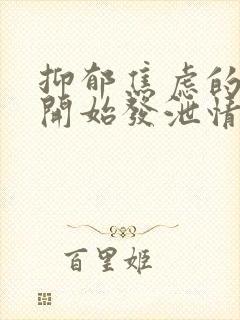 抑郁焦虑的
開始發泄情
百里姬